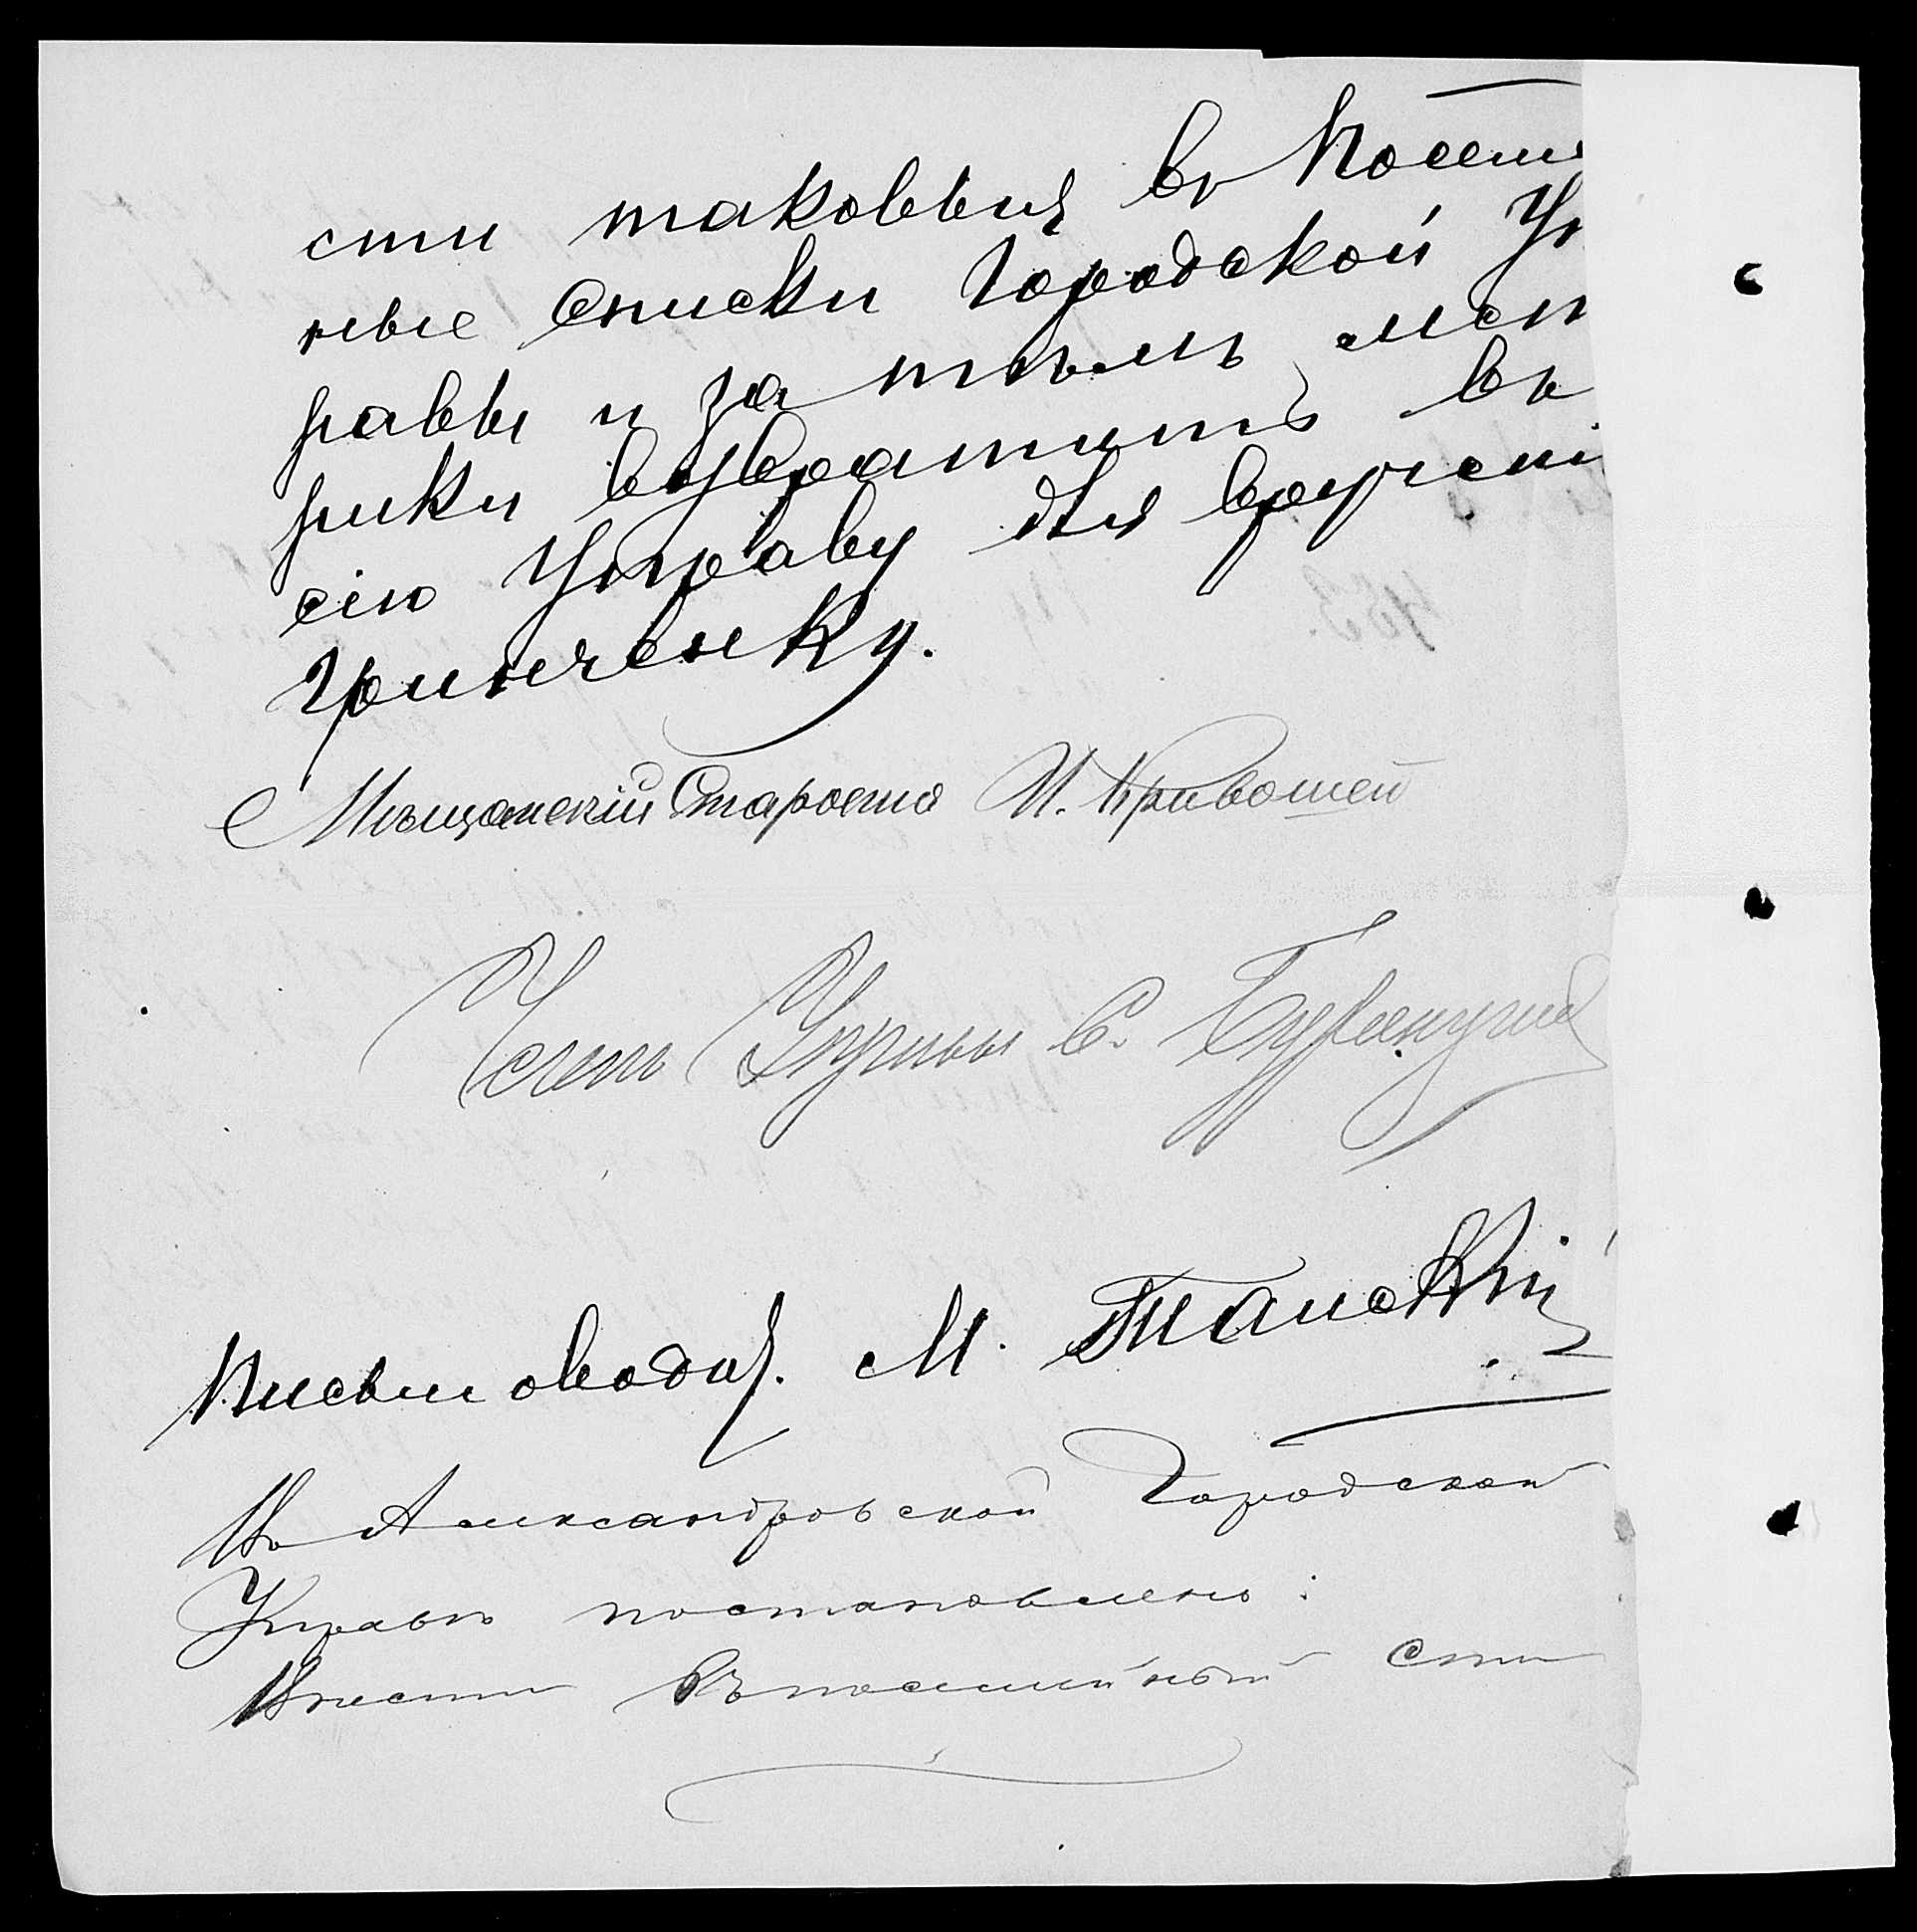 сти таковыя въ Посемей
ные Списки Городской Уп
равы и за тѣмъ мет
рики возвратить въ
сію Управу для врученi
Гринченку.
Мѣщанскій Староста И. Кривошей
Членъ Управы С.
Письмовод. М. Танскій
Въ Александровской Городской
Управѣ постановлено:
Внести въ посемейный спи